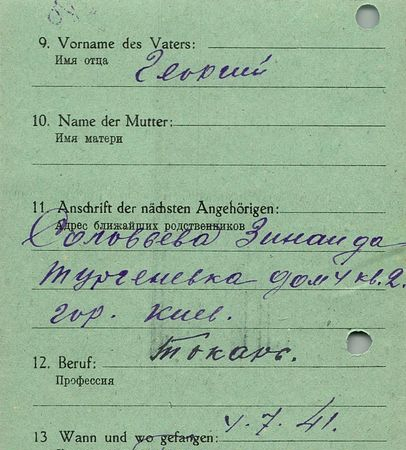 9. Vorname des Vaters:
Имя отца
Георгий
10. Name der Mutter:
Имя матери
11. Anschrift der nächsten Angehörigen:
Адрес ближайших родственников
Соловьева Зинаида
Тургеневка дом 4 кв. 2.
гор. Киев.
12. Beruf: Токарь.
Профессия
13 Wann und wo gefangen: 4.7.41.